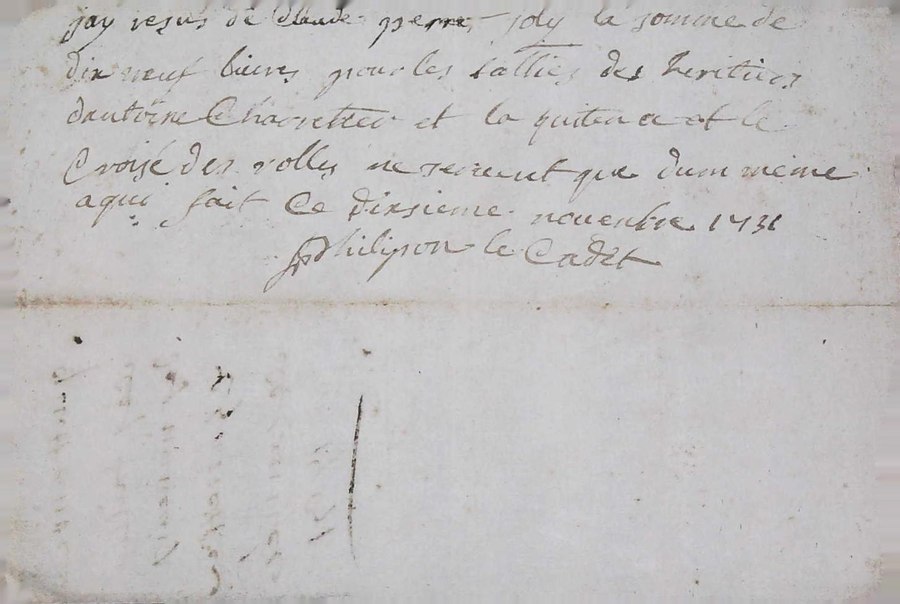 jay resus de Claude pierre joly la somme de
dix neuf livres pour les tallies des heritiers
dantoine Charretter et la quitence et le
Croisé des rolles ne serviront que dum meme
aqui fait Ce dixsieme novenbre 1731
Philipon le Cadet